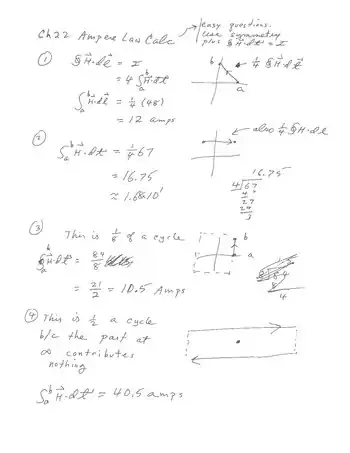 Ch 22 Ampere Law Calc
easy questions.
Use symmetry
plus ∮H⃗·dℓ = I
① ∮H⃗·dℓ⃗ = I
= 4 ∫ₐᵇ H⃗·dℓ⃗
b ¼ ∮H⃗·dℓ⃗
a
∫ₐᵇ H⃗·dℓ⃗ = ¼ (48)
= 12 amps
② ∫ₐᵇ H⃗·dℓ⃗ = ¼ 67
also ¼ ∮H·dℓ
= 16.75
16.75
4 67
4
27
24
3
③ This is ⅛ of a cycle
b
a
∫ₐᵇ H⃗·dℓ⃗ = 84/8
= 21/2 = 10.5 Amps
4
④ This is ½ a cycle
b/c the part at
∞ contributes
nothing
∫ₐᵇ H⃗·dℓ⃗ = 40.5 amps